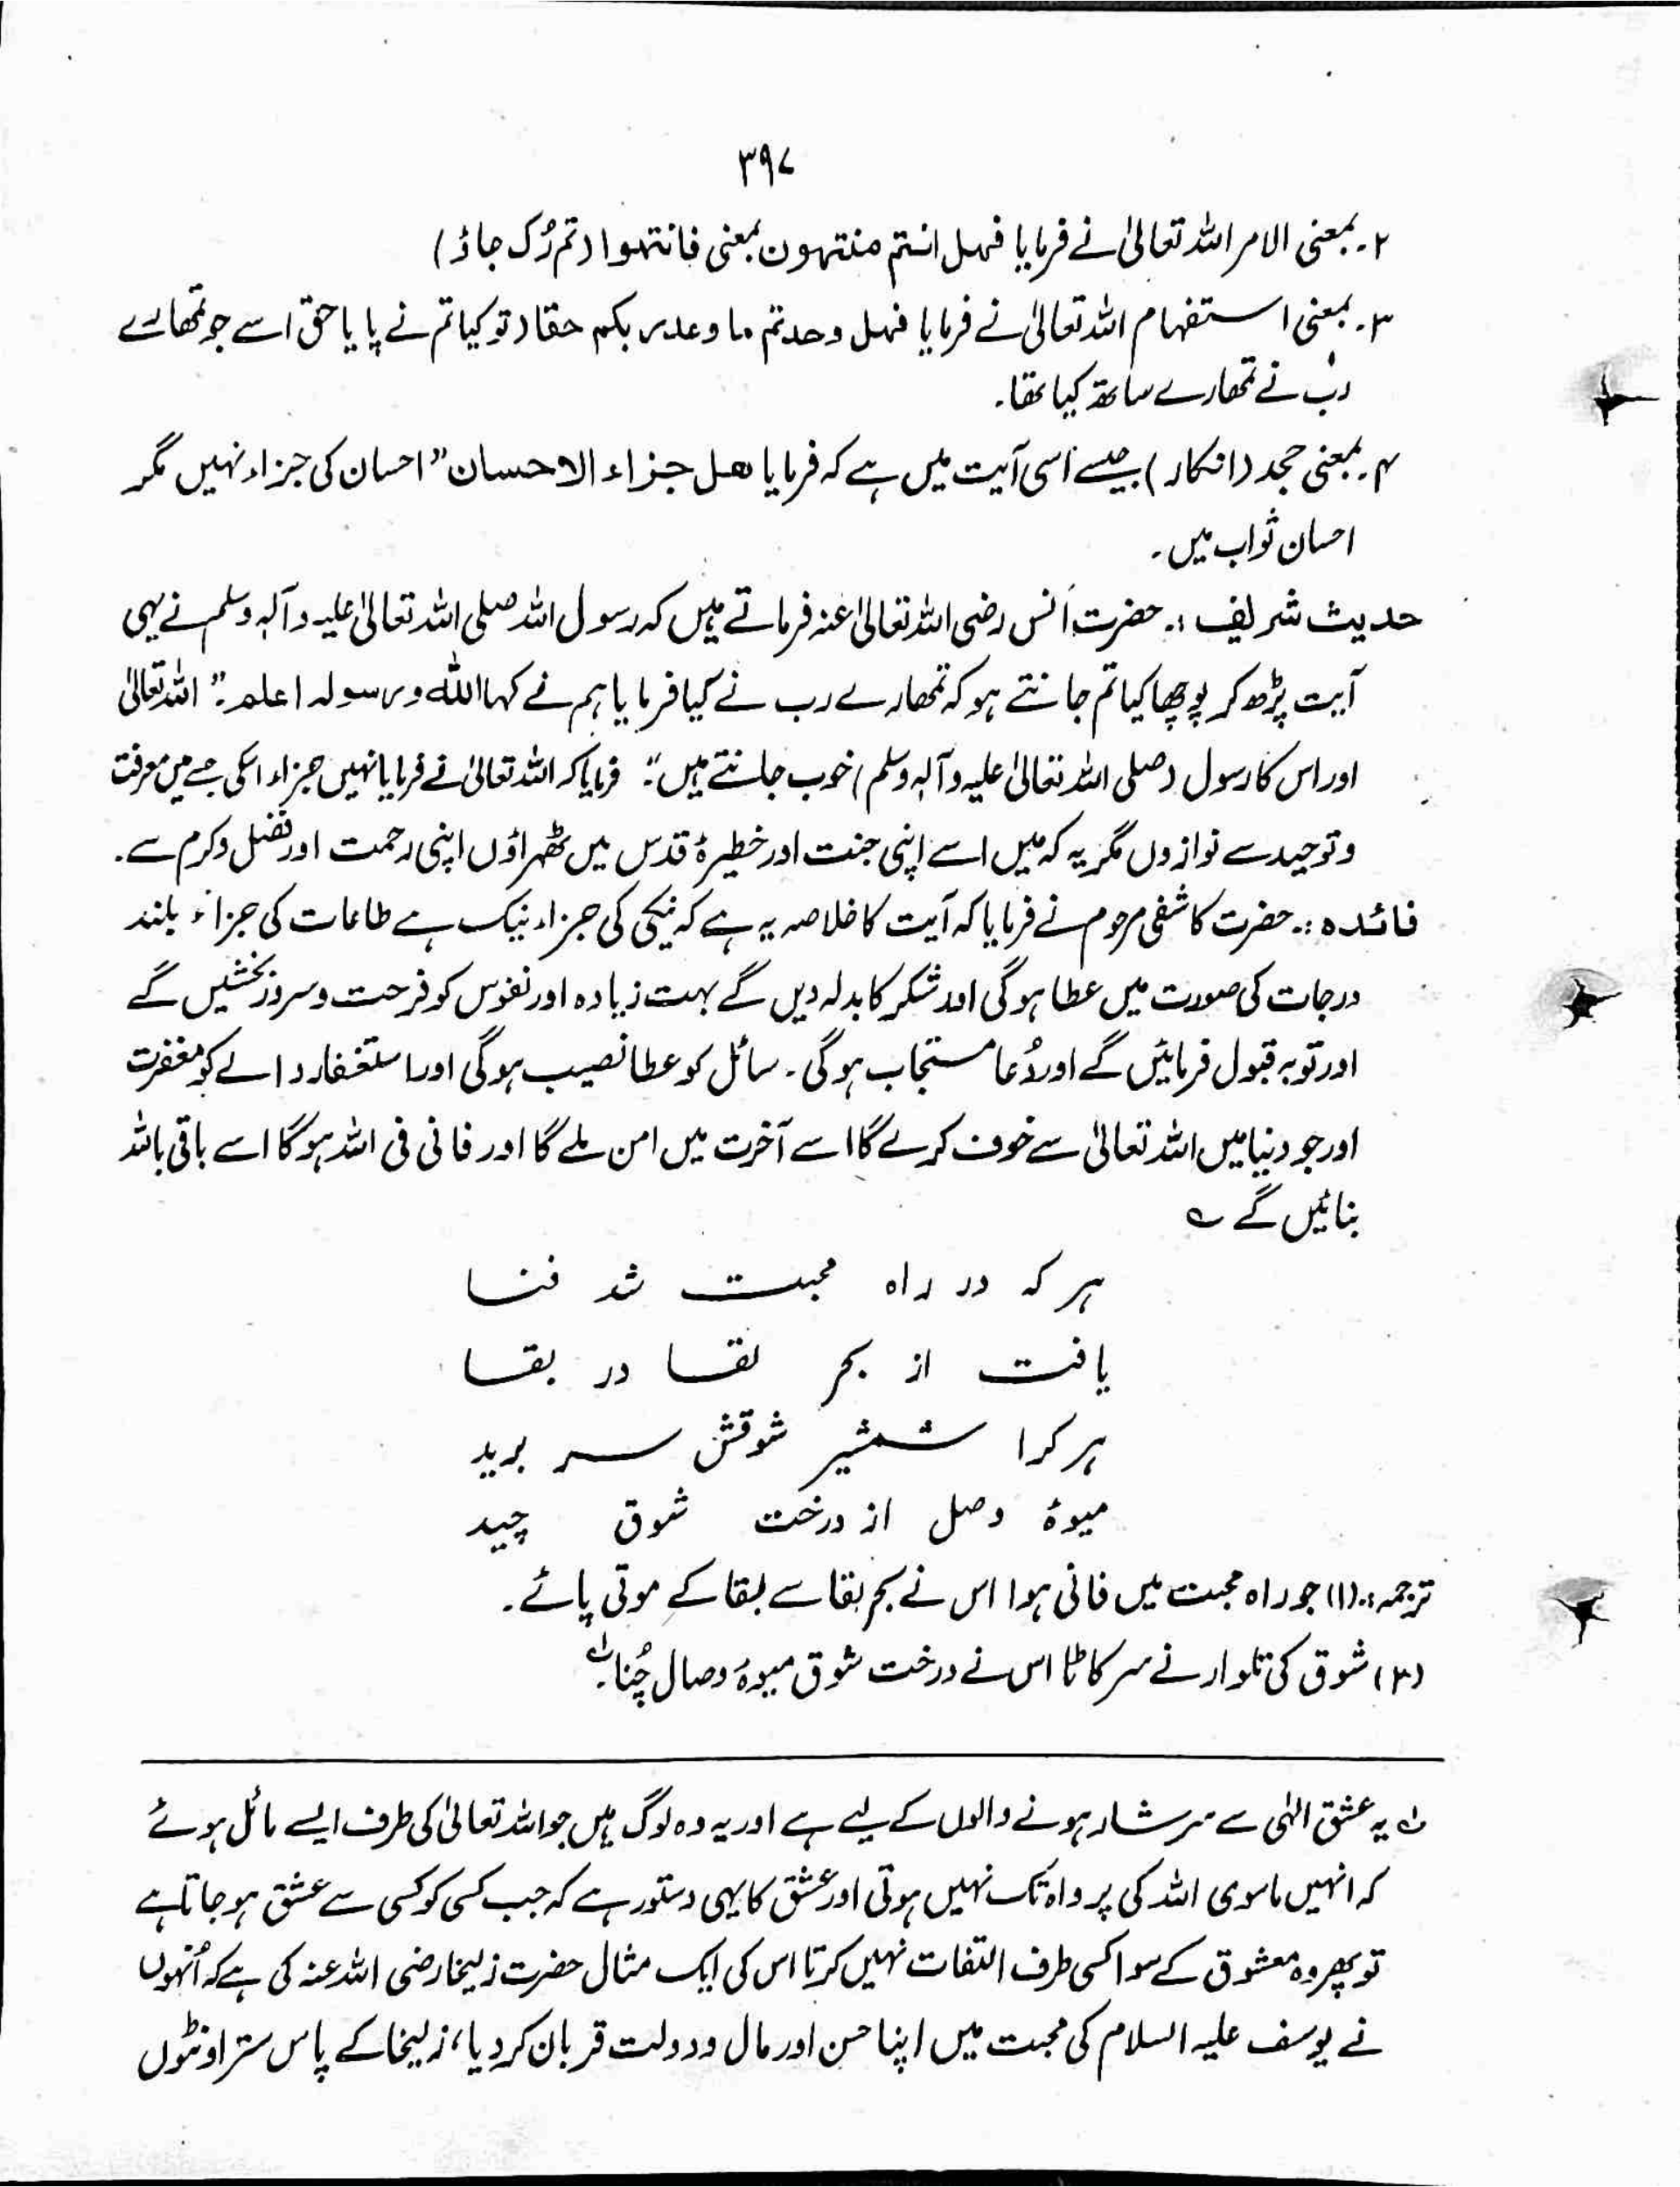 ۳۹۷
۲۔ بمعنی الامر اللہ تعالیٰ نے فرمایا فہل انتم منتہون بمعنی فانتہوا (تم رُک جاؤ)
۳۔ بمعنی استفہام اللہ تعالیٰ نے فرمایا فہل وجدتم ما وعد ربکم حقا (تو کیا تم نے پایا حق اسے جو تمھارے
رب نے تمھارے ساتھ کیا تھا۔
۴۔ بمعنی جحد (انکار) جیسے اسی آیت میں ہے کہ فرمایا ھل جزاء الاحسان” احسان کی جزاء نہیں مگر
احسان ثواب میں۔
حدیث شریف :۔ حضرت اَنس رضی اللہ تعالیٰ عنہ فرماتے ہیں کہ رسول اللہ صلی اللہ تعالیٰ علیہ وآلہ وسلم نے یہی
آیت پڑھ کر پوچھا کیا تم جانتے ہو کہ تمھارے رب نے کیا فرمایا ہم نے کہا اللہ ورسولہ اعلم۔” اللہ تعالیٰ
اور اس کا رسول (صلی اللہ تعالیٰ علیہ وآلہ وسلم) خوب جانتے ہیں“۔ فرمایا کہ اللہ تعالیٰ نے فرمایا نہیں جزاء اسکی جسے میں معرفت
وتوحید سے نوازوں مگر یہ کہ میں اسے اپنی جنت اور خطیرۂ قدس میں ٹھہراؤں اپنی رحمت اور فضل وکرم سے۔
فائدہ :۔ حضرت کاشفی مرحوم نے فرمایا کہ آیت کا خلاصہ یہ ہے کہ نیکی کی جزاء نیک ہے طاعات کی جزاء بلند
درجات کی صورت میں عطا ہوگی اور شکر کا بدلہ دیں گے بہت زیادہ اور نفوس کو فرحت وسرور بخشیں گے
اور توبہ قبول فرمائیں گے اور دُعا مستجاب ہوگی۔ سائل کو عطا نصیب ہوگی اور استغفار والے کو مغفرت
اور جو دنیا میں اللہ تعالیٰ سے خوف کرے گا اسے آخرت میں امن ملے گا اور فانی فی اللہ ہوگا اسے باقی باللہ
بنائیں گے ؎
ہر کہ در راہ محبت شد فنا
یافت از بحر لقا در بقا
ہر کرا شمشیر شوقش سر برید
میوۂ وصل از درخت شوق چید
ترجمہ :۔ (۱) جو راہ محبت میں فانی ہوا اس نے بحر بقا سے لبقا کے موتی پائے۔
(۲) شوق کی تلوار نے سر کاٹا اس نے درخت شوق میوۂ وصال چُنا۔؂
؂ یہ عشق الٰہی سے سرشار ہونے والوں کے لیے ہے اور یہ وہ لوگ ہیں جو اللہ تعالیٰ کی طرف ایسے مائل ہوئے
کہ انہیں ماسوی اللہ کی پرواہ تک نہیں ہوتی اور عشق کا یہی دستور ہے کہ جب کسی کو کسی سے عشق ہو جاتا ہے
تو پھر وہ معشوق کے سوا کسی طرف التفات نہیں کرتا اس کی ایک مثال حضرت زلیخا رضی اللہ عنہ کی ہے کہ اُنہوں
نے یوسف علیہ السلام کی محبت میں اپنا حسن اور مال ودولت قربان کر دیا، زلیخا کے پاس ستر اونٹوں